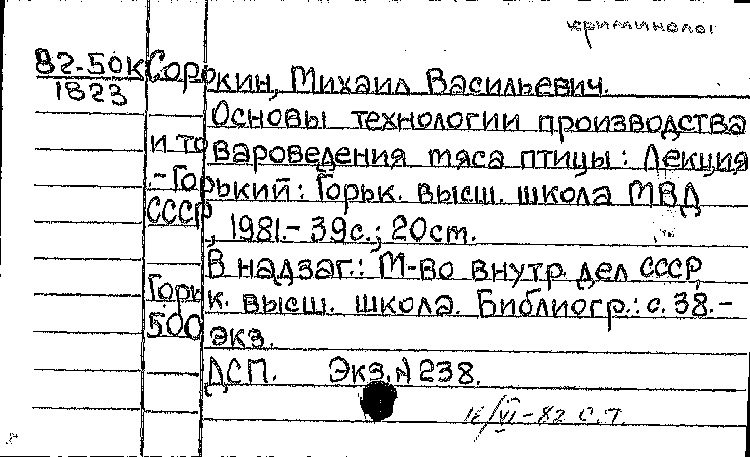 криминолог
82-50к Сорокин, Михаил Васильевич.
1823
Основы технологии производства
и товароведения мяса птицы: Лекция
.- Горький: Горьк. высш. школа МВД
СССР, 1981.- 39с.; 20см.
В надзаг.: М-во внутр. дел СССР,
Горьк. высш. школа. Библиогр.: с. 38.-
500 экз.
ДСП. Экз. № 238.
16/VI-82 С.Т.